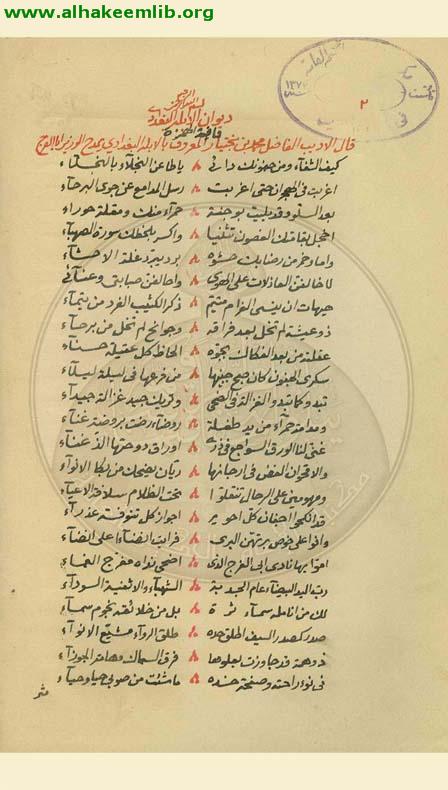 www.alhakeemlib.org
٢
بسم الله الرحمن
ديوان الابله البغدادي
قافية الهمزة
قال الاديب الفاضل محمد بن بختيار المعروف بالابله البغدادي يمدح الوزير ابا الفرج
كيف الشفآء ومن جفونك دائي ۸ يا طاعن النجلآء بالنجلآء
اغربت في الهجران حتى اعربت ۸ رسل المدامع عن جوى البرحآء
بعد السلو وقد بليت بوجنة ۸ حمرآء منك ومقلة حورآء
اخجل بقامتك الغصون تثنيا ۸ واكسر بلحظك سورة الصهبآء
واما وخمر من رضابك حشوه ۸ برد يبرد غلة الاحشآء
لاخالفن العاذلات على الهوى ۸ واحالفن صبابتي وعنآئي
هيهات ان ينسى الغرام متيم ۸ ذكر الكثيب الفرد من تيمآء
ذو عيشة لم تخل بعد فراقه ۸ وجوانح لم تخل من برحآء
عقلته من بعد الفكاك بجوه ۸ الحاظ كل عقيلة حسنآء
سكرى الجفون كان صبح جبينها ۸ من فرعها في ليلة ليلآء
تبدو كما تبدو الغزالة في الضحى ۸ وتريك جيد غزالة جيدآء
ومدامة حمرآء من يد طفلة ۸ روضآء رضت بروضة غنآء
غنى لنا الورق السواجع في ذرى ۸ اوراق دوحتها الذ غنآء
والاقحوان الغض في ارجائها ۸ ريان يضحك من بكا الانوآء
ومهومين على الرحال تنقلوا ۸ تحت الظلام سلافة الاعيآء
قد اكحلوا اجفان كل ۸ اجواز كل تنوفة عذرآء
وانوا على خوص برتهن البرى ۸ فرات انضآءا على انضآء
اموا بها نادي ابي الفرج الذي ۸ اضحى نداه مفرج الغمآء
رب اليد البيضآء عام الجدبة ۸ الشهبآء والاثفية السودآء
لك من انامله سمآء ثرة ۸ بل من خلائقه نجوم سمآء
صدر كصدر السيف الطلق حده ۸ طلق الروآء مشيع الانوآء
ذو همة قد جاوزت بعلوها ۸ فرق السماك وهامة الجوزآء
في نوء راحته وصفحة خده ۸ ما شئت من صوبي حيا وحيآء